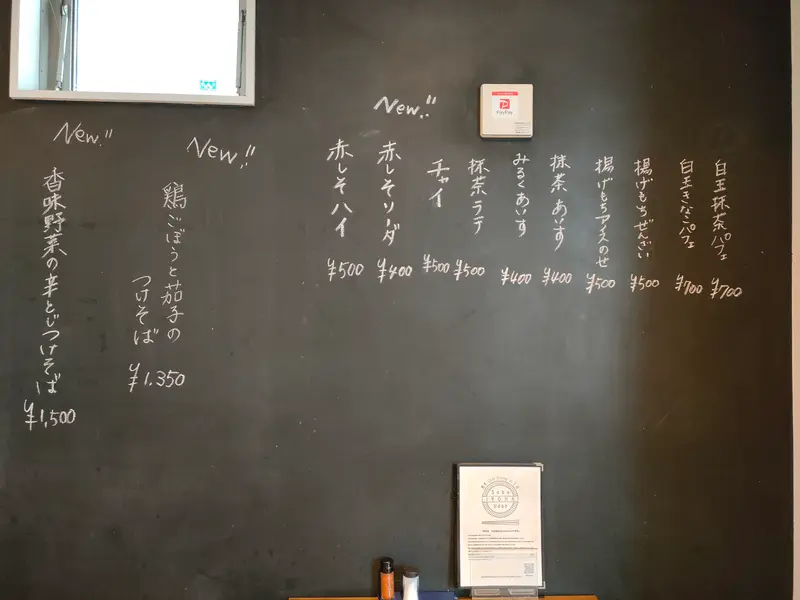 白玉抹茶パフェ
¥700
白玉きなこパフェ
¥700
揚げもちぜんざい
¥500
揚げもちアイスのせ
¥500
抹茶あいす
¥400
みるくあいす
¥400
抹茶ラテ
¥500
チャイ
¥500
New!!
赤しそソーダ
¥400
赤しそハイ
¥500
New!!
鶏ごぼうと茄子の
つけそば
¥1,350
New!!
香味野菜の辛とじつけそば
¥1,500
PayPay